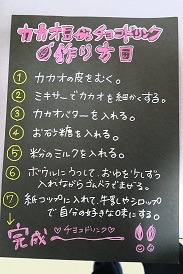 カカオ豆de チョコドリンク
の作り方
① カカオの皮をむく。
② ミキサーでカカオを細かくする。
③ カカオバターを入れる。
④ お砂糖を入れる。
⑤ 粉のミルクを入れる。
⑥ ボウルにうつして、おゆを少しずつ
入れながらゴムベラでまぜる。
⑦ 紙コップに入れて、牛乳やシロップ
で自分の好きな味にする。
完成 チョコドリンク